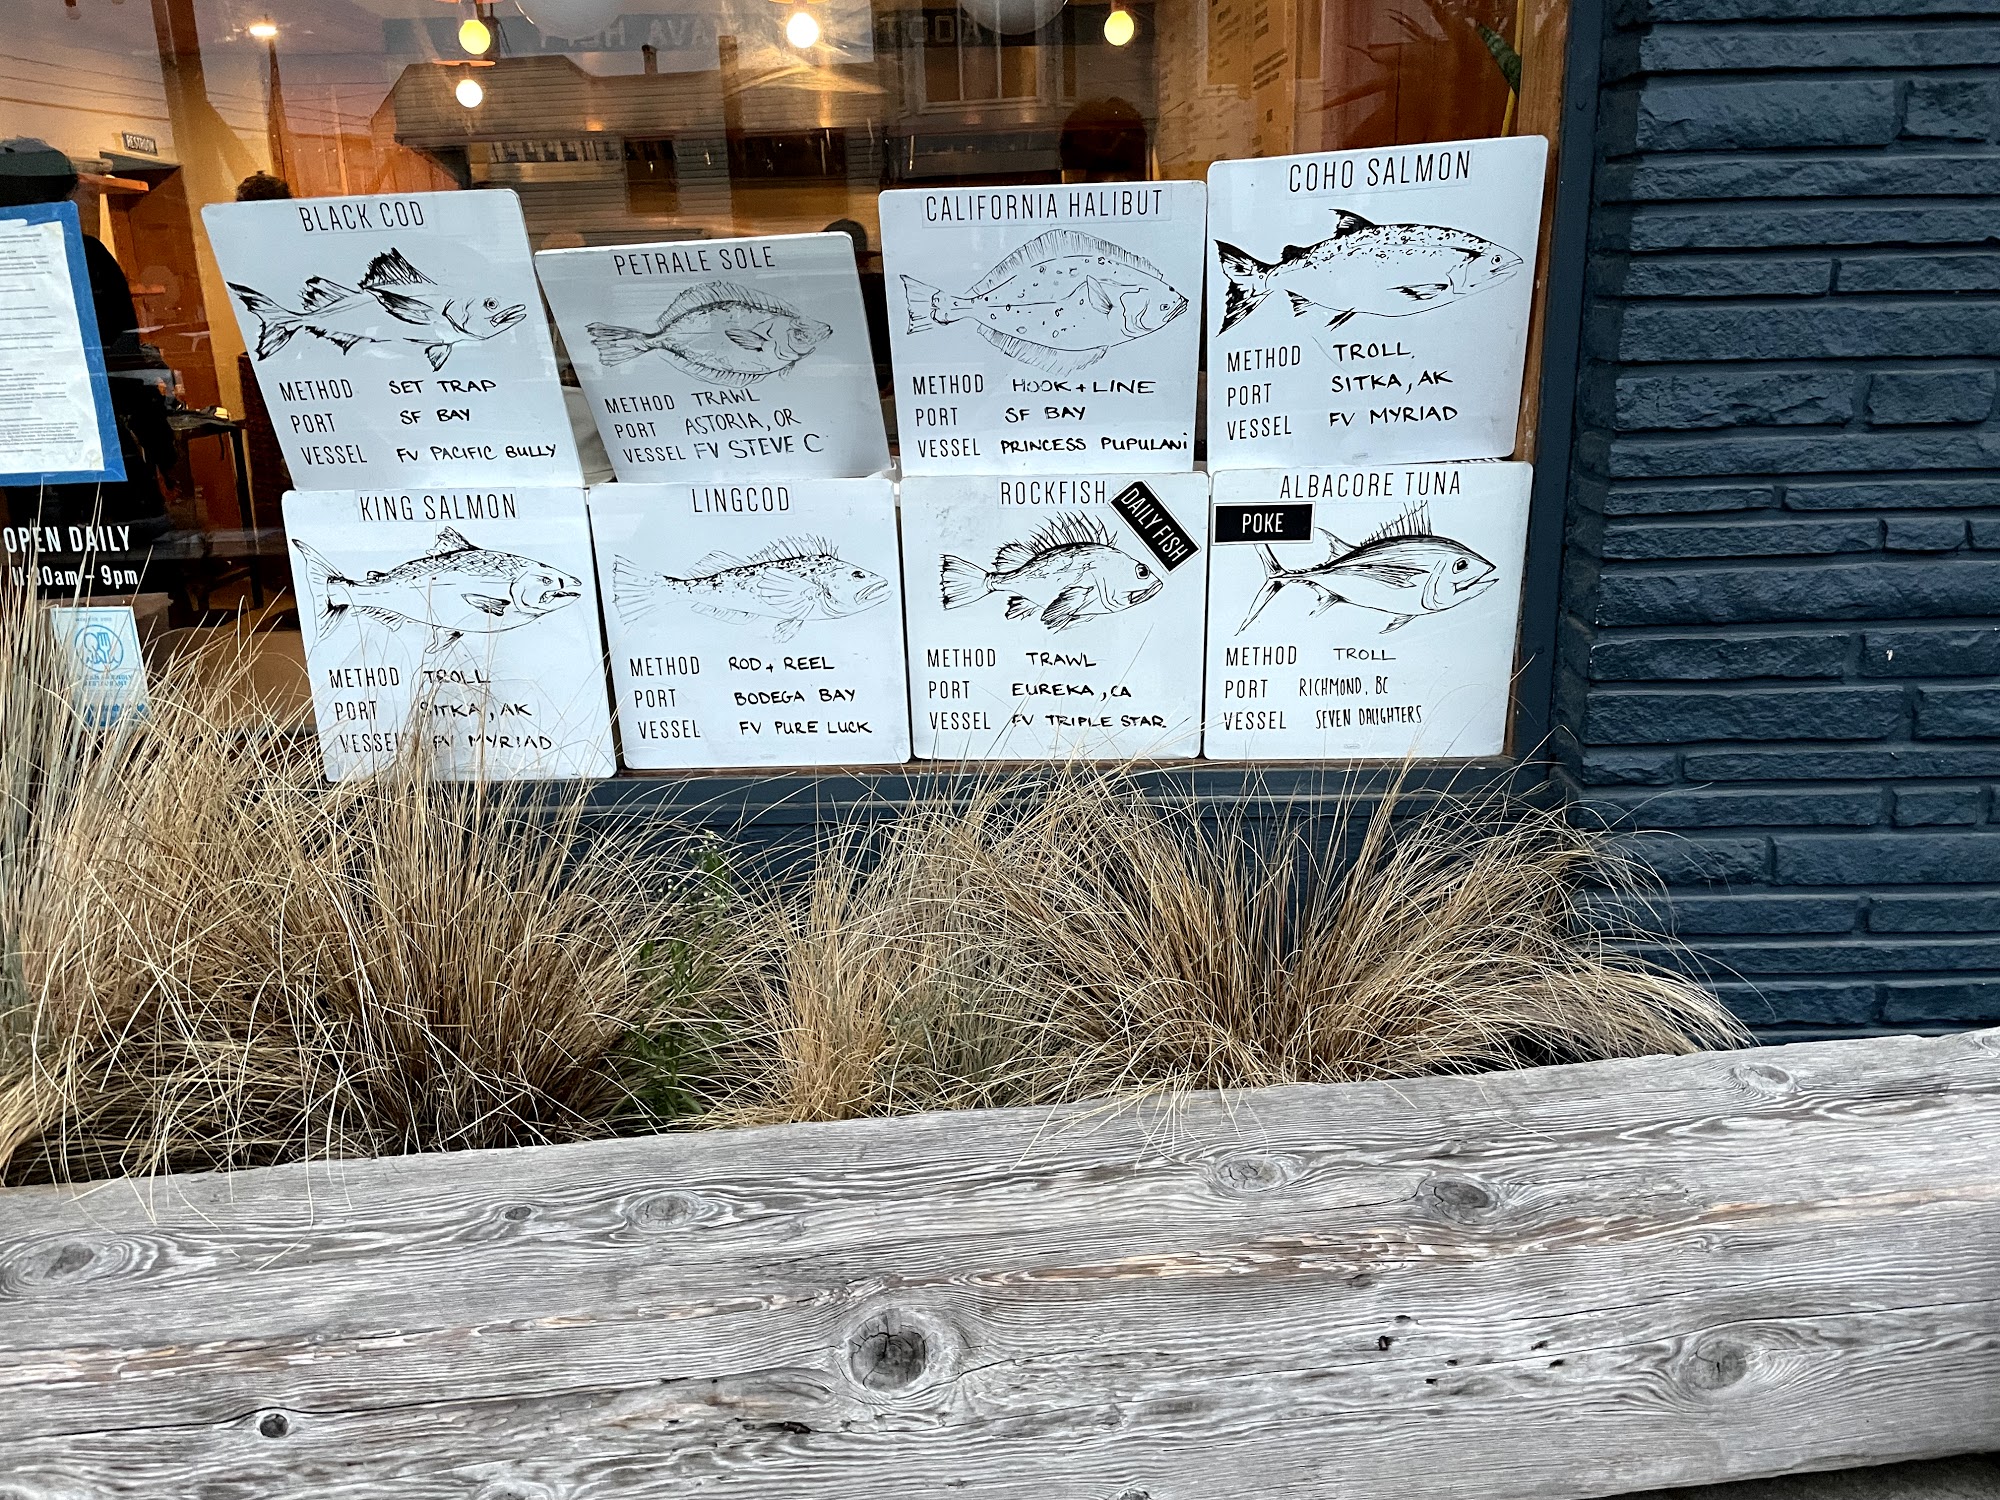 RESTROOM
BLACK COD
METHOD SET TRAP
PORT SF BAY
VESSEL FV PACIFIC BULLY
PETRALE SOLE
METHOD TRAWL
PORT ASTORIA, OR
VESSEL FV STEVE C
CALIFORNIA HALIBUT
METHOD HOOK + LINE
PORT SF BAY
VESSEL PRINCESS PUPULANi
COHO SALMON
METHOD TROLL.
PORT SITKA, AK
VESSEL FV MYRIAD
OPEN DAILY
11:30am – 9pm
KING SALMON
METHOD TROLL
PORT SITKA, AK
VESSEL FV MYRIAD
LINGCOD
METHOD ROD + REEL
PORT BODEGA BAY
VESSEL FV PURE LUCK
ROCKFISH
DAILY FISH
METHOD TRAWL
PORT EUREKA, CA
VESSEL FV TRIPLE STAR
ALBACORE TUNA
POKE
METHOD TROLL
PORT RICHMOND, BC
VESSEL SEVEN DAUGHTERS